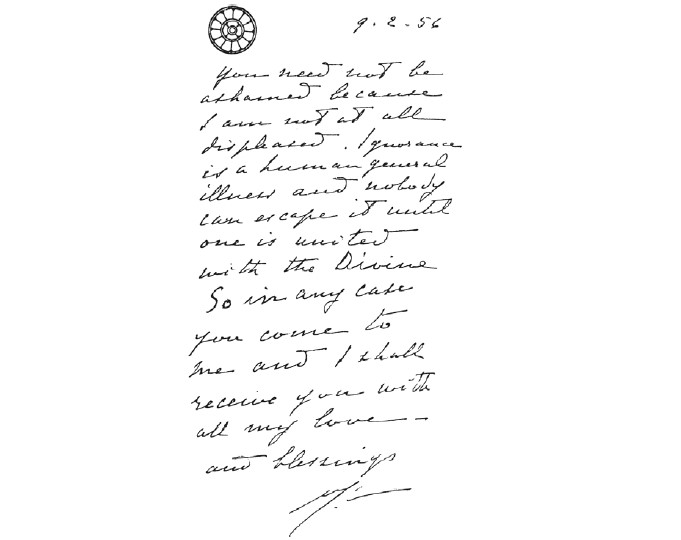 9-2-56
You need not be
ashamed because
I am not at all
displeased. Ignorance
is a human general
illness and nobody
can escape it until
one is united
with the Divine
So in any case
you come to
me and I shall
receive you with
all my love –
and blessings